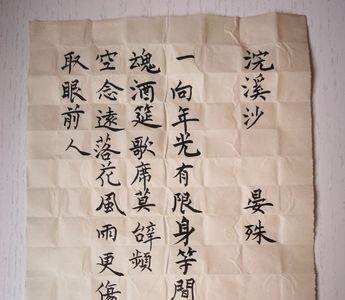 浣溪沙 晏殊
一向年光有限身等間
魂酒筵歌席莫辭頻
空念遠落花風雨更傷
取眼前人